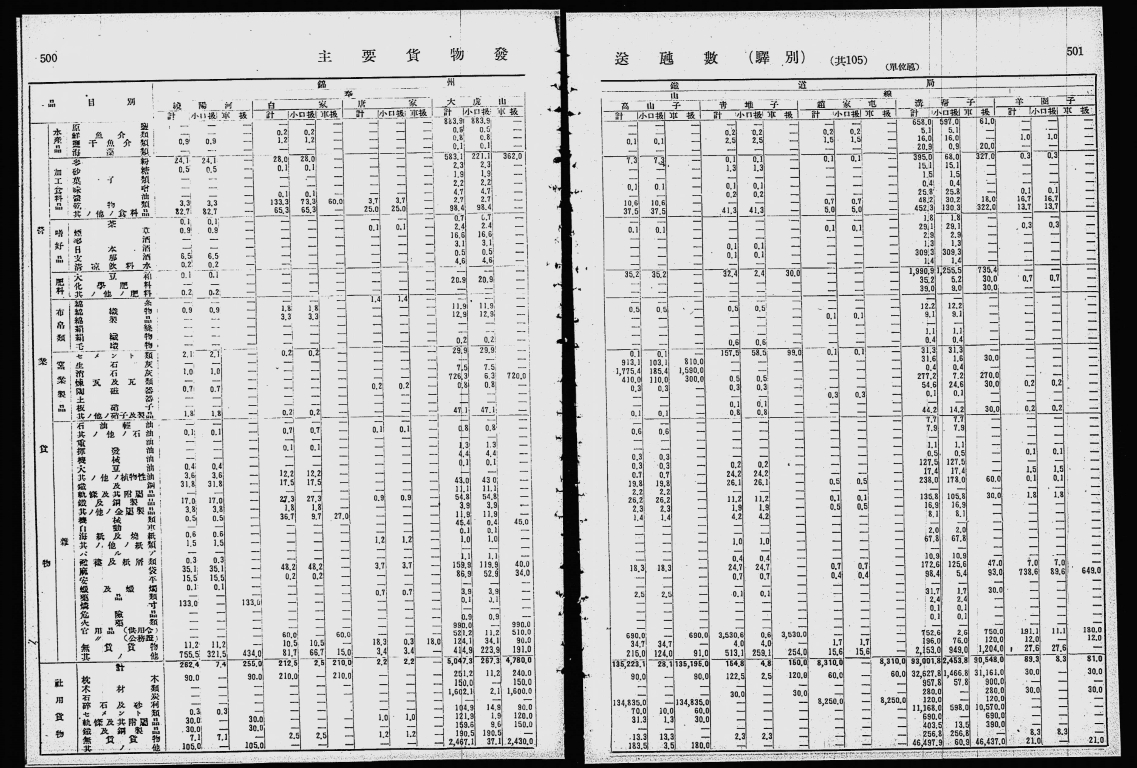 500
主要貨物發
錦州
奉
品目別
綾陽河 白家 唐家 大虎山
計 小口扱 車扱 計 小口扱 車扱 計 小口扱 車扱 計 小口扱 車扱
水產品
883,9 883,9
鮮魚介類 — — — 0,2 0,2 — — — —
鹽干魚介類 0,9 0,9 — 1,2 1,2 — — — — 0,8 0,8 —
海藻類 — — — — — — — — — 0,1 0,1 —
加工食料品
麥粉 24,1 24,1 — 28,0 28,0 — — — — 583,1 221,1 362,0
砂糖 0,5 0,5 — 0,1 0,1 — — — — 2,3 2,3 —
菓子類 1,9 1,9
味噌 2,2 2,2
醬油 0,1 0,1 4,7 4,7
乾物類 3,3 3,3 — 133,3 73,3 60,0 3,7 3,7 — 2,7 2,7 —
其ノ他ノ食料品 82,7 82,7 — 65,3 65,3 — 25,0 25,0 — 98,4 98,4 —
嗜好品
茶 0,1 0,1 0,7 0,7
煙草 0,9 0,9 0,1 0,1 2,4 2,4
16,6 16,6
日本酒 3,1 3,1
支那酒 6,5 6,5 0,5 0,5
清涼飲料水 0,2 0,2 4,6 4,6
肥料
大豆粕 0,1 0,1 20,9 20,9
化學肥料
其ノ他ノ肥料 0,2 0,2
布帛類
綿糸 1,4 1,4
綿織物 0,9 0,9 1,8 1,8 11,9 11,9
綿製品 3,3 3,3 12,9 12,9
絹織物
毛織物 0,2 0,2
窯業製品
セメント類 2,1 2,1 0,2 0,2 29,9 29,9
生石灰
消石灰 1,0 1,0 7,5 7,5
煉瓦及瓦類 726,3 6,3 720,0
陶磁器 0,7 0,7 0,2 0,2 0,8 0,8
土器
板硝子
其ノ他ノ硝子及製品 1,8 1,8 0,2 0,2 47,1 47,1
營業貨物
雜
石油輕油
其ノ他ノ石油 0,1 0,1 0,7 0,7 0,1 0,1 0,8 0,8
重油
揮發油 0,1 0,1 1,3 1,3
機械油 4,4 4,4
大豆油 0,4 0,4 0,1 0,1
其ノ他ノ植物性油 3,6 3,6 12,2 12,2
鐵及鋼 31,8 31,8 17,5 17,5 43,0 43,0
軌條及其附屬品 11,1 11,1
鐵及鋼製品 17,0 17,0 27,3 27,3 0,9 0,9 54,8 54,8
其ノ他ノ金屬製品 3,8 3,8 1,8 1,8 3,9 3,9
機械類 0,5 0,5 36,7 9,7 27,0 11,9 11,9
自動車 45,4 0,4 45,0
海紙及燒紙 0,6 0,6 0,1 0,1
其ノ他ノ紙類 1,5 1,5 1,2 1,2 1,0 1,0
パルプ
襤褸及紙屑類 0,3 0,3 1,1 1,1
麻袋 35,1 35,1 48,2 48,2 3,7 3,7 159,9 119,9 40,0
安平 15,5 15,5 0,2 0,2 86,9 52,9 34,0
蠟及蠟燭 0,1 0,1
藥品類 0,7 0,7 3,9 3,9
燐寸 133,0 133,0 0,1 0,1
危險品
火藥類 0,9 0,9
官用品(供用令) 990,0 990,0
〃(公務證) 60,0 60,0 521,2 11,2 510,0
無賃貨物 11,2 11,2 10,5 10,5 18,3 0,3 18,0 124,1 34,1 90,0
其ノ他 755,5 321,5 434,0 81,7 66,7 15,0 3,4 3,4 414,9 223,9 191,0
計 262,4 7,4 255,0 212,5 2,5 210,0 2,2 2,2 — 5,047,3 267,3 4,780,0
社用貨物
枕木 90,0 90,0 210,0 210,0 251,2 11,2 240,0
木材類 150,0 150,0
石炭 1,602,1 2,1 1,600,0
碎石及砂利
セメント類 0,3 0,3 104,9 14,9 90,0
軌條及其附屬品 30,0 30,0 1,0 1,0 121,9 1,9 120,0
鐵及鋼製品 30,0 30,0 159,6 9,6 150,0
無賃貨物 7,1 7,1 2,5 2,5 1,2 1,2 190,5 190,5
其ノ他 105,0 105,0 2,467,1 37,1 2,430,0
501
送噸數(驛別) (共105)
(單位噸)
鐵道局
山線
高山子 青堆子 趙家屯 溝幫子 羊圈子
計 小口扱 車扱 計 小口扱 車扱 計 小口扱 車扱 計 小口扱 車扱 計 小口扱 車扱
658,0 597,0 61,0
0,2 0,2 0,2 0,2 5,1 5,1
0,1 0,1 2,5 2,5 1,5 1,5 16,0 16,0 1,0 1,0
20,9 0,9 20,0
7,3 7,3 0,1 0,1 0,1 0,1 395,0 68,0 327,0 0,3 0,3
1,3 1,3 15,1 15,1
1,5 1,5
0,1 0,1 0,1 0,1 0,4 0,4
0,2 0,2 25,8 25,8 0,1 0,1
10,6 10,6 0,7 0,7 48,2 30,2 18,0 16,7 16,7
37,5 37,5 41,3 41,3 5,0 5,0 452,3 130,3 322,0 13,7 13,7
1,8 1,8
0,1 0,1 29,1 29,1 0,3 0,3
2,9 2,9
0,1 0,1 1,3 1,3
0,1 0,1 309,3 309,3
1,4 1,4
35,2 35,2 32,4 2,4 30,0 1,990,9 1,255,5 735,4
35,2 5,2 30,0 0,7 0,7
39,0 9,0 30,0
0,5 0,5 0,5 0,5 12,2 12,2
9,1 9,1
1,1 1,1
0,6 0,6 0,4 0,4
0,1 0,1 157,5 58,5 99,0 0,1 0,1 31,3 31,3
913,1 103,1 810,0 31,6 1,6 30,0
1,775,4 185,4 1,590,0 0,4 0,4
410,0 110,0 300,0 0,5 0,5 277,2 7,2 270,0
0,3 0,3 0,3 0,3 54,6 24,6 30,0 0,2 0,2
0,3 0,3 0,1 0,1
0,1 0,1
0,1 0,1 0,8 0,8 44,2 14,2 30,0 0,2 0,2
7,7 7,7
0,6 0,6 7,9 7,9
1,1 1,1
0,3 0,3 0,5 0,5 0,1 0,1
0,3 0,3 0,2 0,2 127,5 127,5
0,7 0,7 24,2 24,2 17,4 17,4 1,5 1,5
19,8 19,8 26,1 26,1 0,5 0,5 238,0 178,0 60,0 0,1 0,1
2,2 2,2
26,2 26,2 11,2 11,2 0,1 0,1 135,8 105,8 30,0 1,8 1,8
2,3 2,3 1,9 1,9 0,5 0,5 16,9 16,9
1,4 1,4 4,2 4,2 8,1 8,1
2,0 2,0
1,0 1,0 67,8 67,8
0,4 0,4 10,9 10,9
18,3 18,3 24,7 24,7 0,7 0,7 172,6 125,6 47,0 7,0 7,0
0,7 0,7 0,4 0,4 98,4 5,4 93,0 738,6 89,6 649,0
2,5 2,5 0,1 0,1 31,7 1,7 30,0
2,4 2,4
0,1 0,1
0,1 0,1
690,0 690,0 3,530,6 0,6 3,530,0 752,6 2,6 750,0 191,1 11,1 180,0
34,7 34,7 4,0 4,0 1,7 1,7 196,0 76,0 120,0 12,0 12,0
215,0 124,0 91,0 513,1 259,1 254,0 15,6 15,6 2,153,0 949,0 1,204,0 27,6 27,6
135,223,1 28,1 135,195,0 154,8 4,8 150,0 8,310,0 8,310,0 93,001,8 2,453,8 90,548,0 89,3 8,3 81,0
90,0 90,0 122,5 2,5 120,0 60,0 60,0 32,627,8 1,466,8 31,161,0 30,0 30,0
957,8 57,8 900,0
30,0 30,0 280,0 280,0 30,0 30,0
134,835,0 134,835,0 8,250,0 8,250,0 120,0 120,0
70,0 10,0 60,0 11,168,0 598,0 10,570,0
31,3 1,3 30,0 690,0 690,0
403,5 13,5 390,0
13,3 13,3 2,3 2,3 256,8 256,8 8,3 8,3
183,5 3,5 180,0 46,497,9 60,9 46,437,0 21,0 21,0